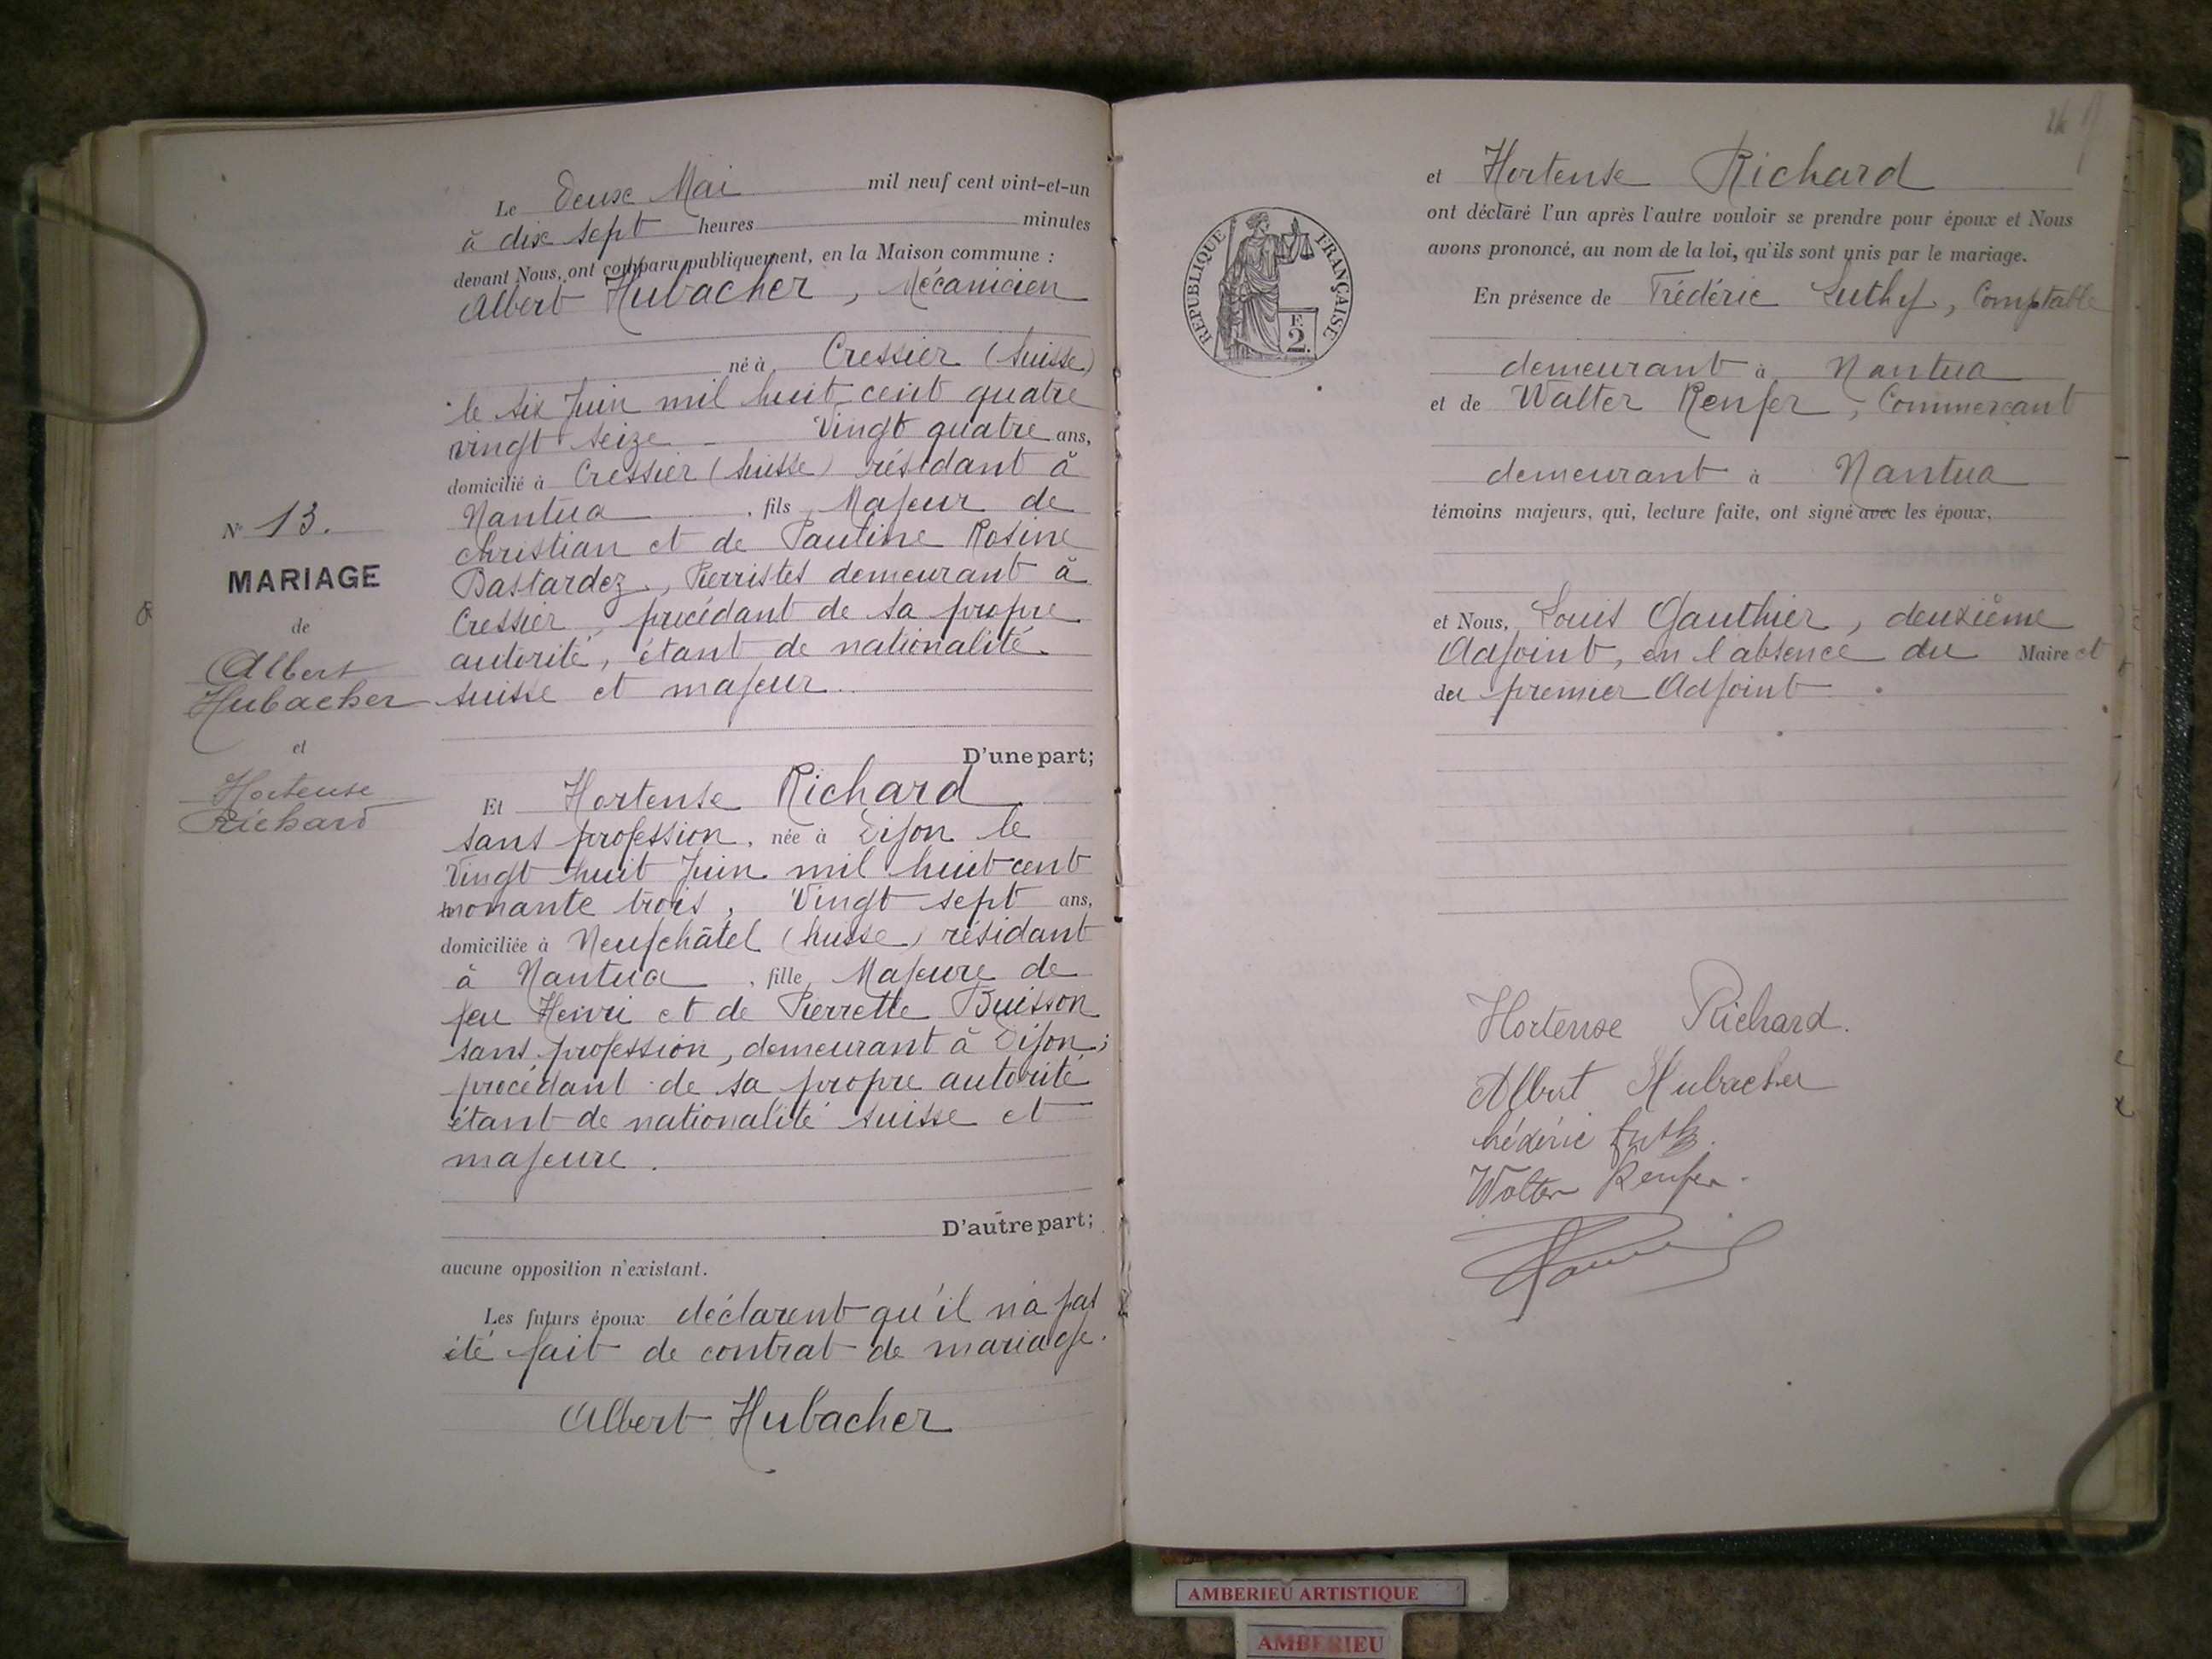 Le Deux Mai mil neuf cent vint-et-un
à dix sept heures minutes
devant Nous, ont comparu publiquement, en la Maison commune :
Albert Hubacher, Mécanicien
né à Cressier (Suisse)
le six Juin mil huit cent quatre
vingt seize Vingt quatre ans,
domicilié à Cressier (Suisse) résidant à
Nantua, fils Majeur de
Christian et de Pauline Rosine
Bastardez, Pierristes demeurant à
Cressier, procédant de sa propre
autorité, étant de nationalité
suisse et majeur
D'une part;
N° 13.
MARIAGE
de
Albert
Hubacher
et
Hortense
Richard
Et Hortense Richard
sans profession, née à Dijon le
Vingt huit Juin mil huit cent
nonante trois, Vingt sept ans,
domiciliée à Neufchâtel (Suisse) résidant
à Nantua, fille Majeure de
feu Henri et de Pierrette Buisson
sans profession, demeurant à Dijon;
procédant de sa propre autorité
étant de nationalité suisse et
majeure.
D'autre part;
aucune opposition n'existant.
Les futurs époux déclarent qu'il n'a pas
été fait de contrat de mariage.
Albert Hubacher
REPUBLIQUE FRANÇAISE
F.
2.
et Hortense Richard
ont déclaré l'un après l'autre vouloir se prendre pour époux et Nous
avons prononcé, au nom de la loi, qu'ils sont unis par le mariage.
En présence de Frédéric Luthy, Comptable
demeurant à Nantua
et de Walter Renfer, Commerçant
demeurant à Nantua
témoins majeurs, qui, lecture faite, ont signé avec les époux,
et Nous, Louis Gauthier, deuxième
Adjoint, en l'absence du Maire et
du premier Adjoint.
Hortense Richard.
Albert Hubacher
Frédéric Luthy.
Walter Renfer.
AMBERIEU ARTISTIQUE
AMBERIEU